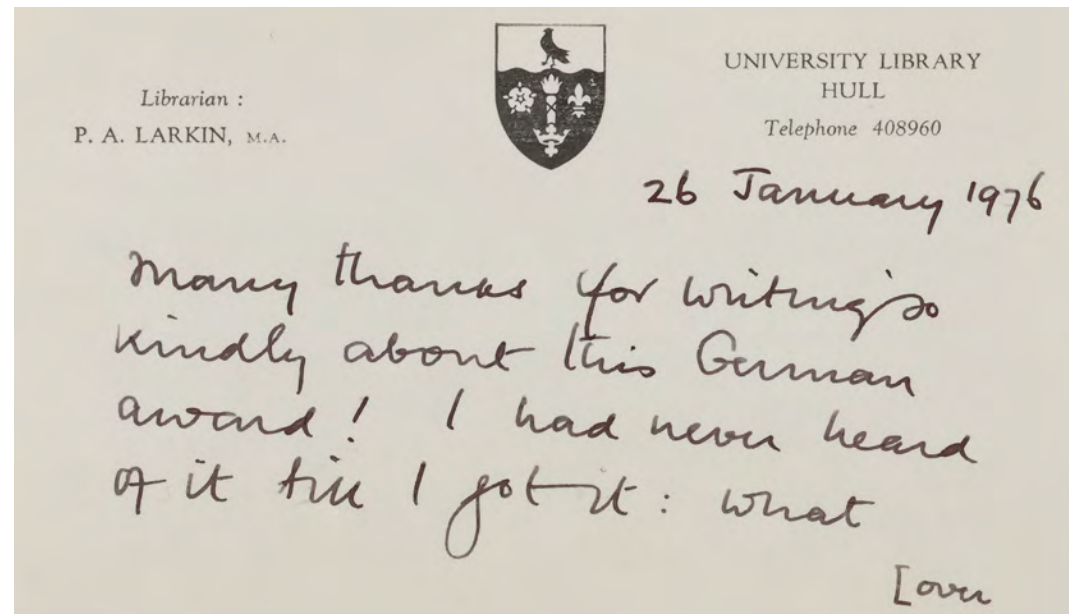 Librarian :
P. A. LARKIN, M.A.
UNIVERSITY LIBRARY
HULL
Telephone 408960
26 January 1976
Many thanks for writing so
kindly about this German
award! I had never heard
of it till I got it: what
[over